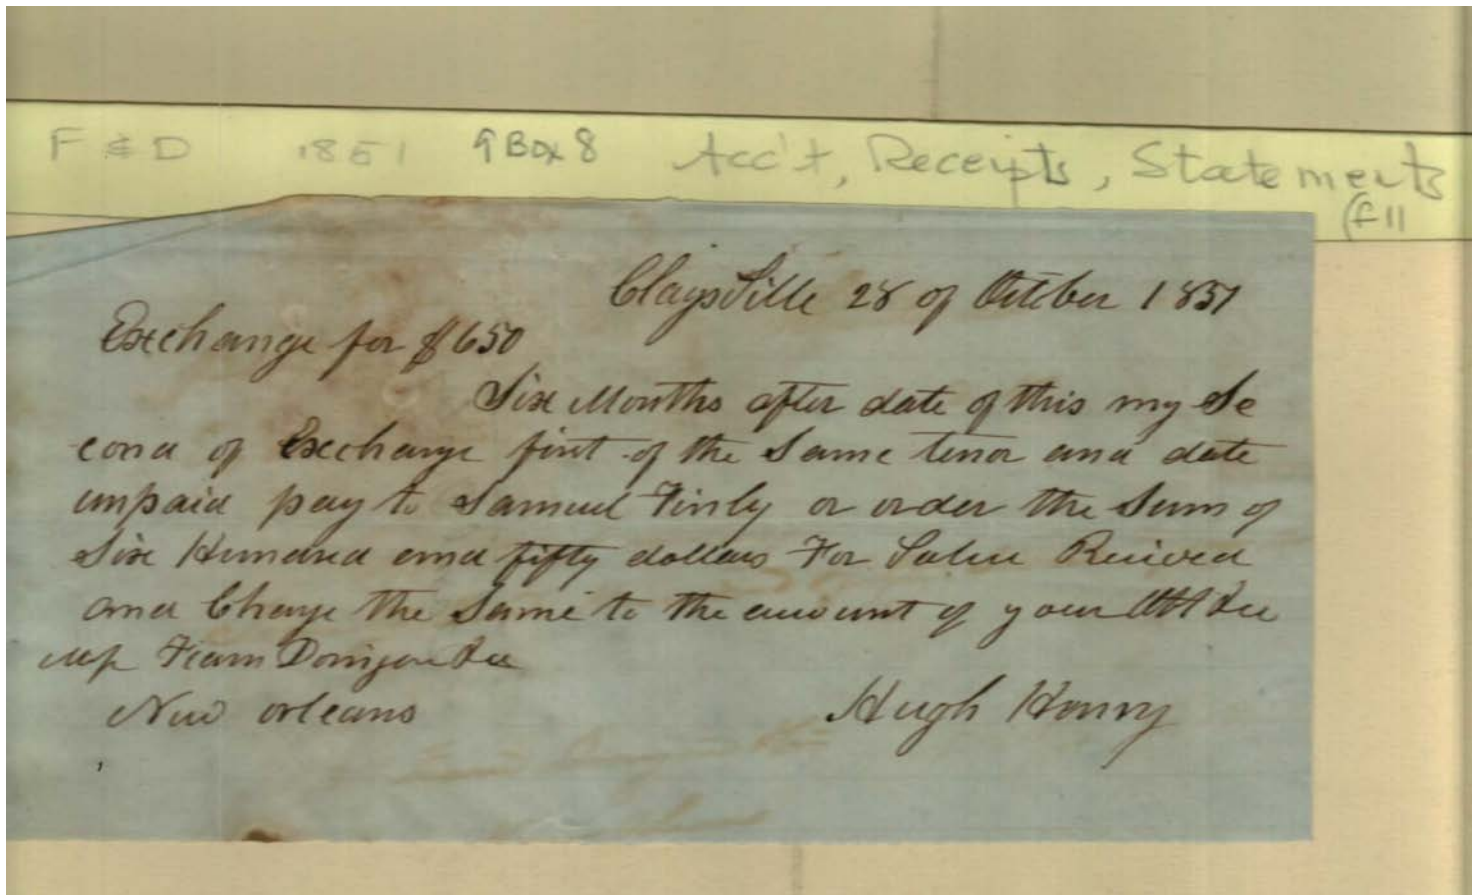 F & D 1851 9 Box 8 Acc't, Receipts, Statements
(f 11
Claysville 28 of October 1851
Exchange for $650
Six Months after date of this my Se
cond of Exchange first of the Same tenor and date
unpaid pay to Samuel Finly or order the Sum of
Six Hundred and fifty dollars For Value Reicved
and Charge the Same to the account of your Obt
New orleans
Hugh Henry